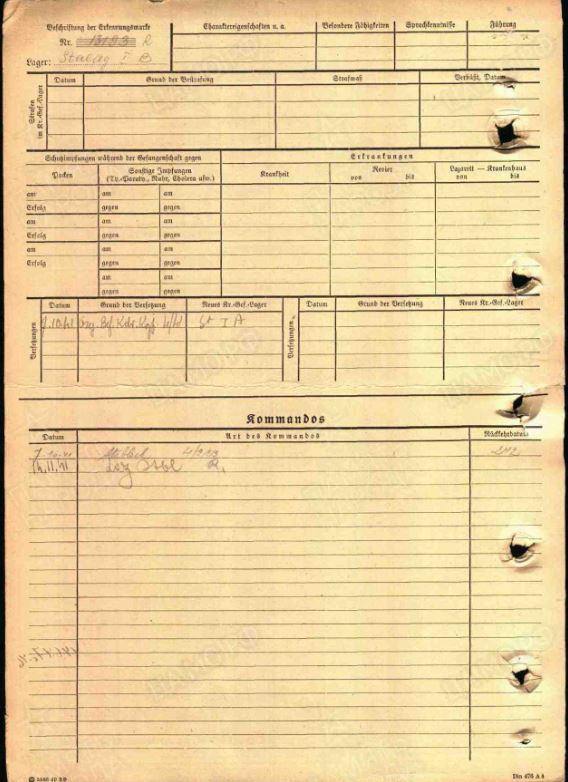 Beschriftung der Erkennungsmarke
Nr. 13193 R
Lager: Stalag I B
Charaktereigenschaften u. a.
Besondere Fähigkeiten
Sprachkenntnisse
Führung
Strafen im Kr.-Gef.-Lager
Datum
Grund der Bestrafung
Strafmaß
Verbüßt, Datum
Schutzimpfungen während der Gefangenschaft gegen
Pocken
Sonstige Impfungen
(Ty.-Paraty., Ruhr, Cholera usw.)
am am am
Erfolg gegen gegen
am am am
Erfolg gegen gegen
am am am
Erfolg gegen gegen
am am
gegen gegen
Erkrankungen
Krankheit
Revier
von bis
Lazarett — Krankenhaus
von bis
Versetzungen
Datum
Grund der Versetzung
Neues Kr.-Gef.-Lager
St I A
Versetzungen
Datum
Grund der Versetzung
Neues Kr.-Gef.-Lager
Kommandos
Datum
Art des Kommandos
Rückkehrdatum
7.10.41
14.11.41
Din 476 A 4